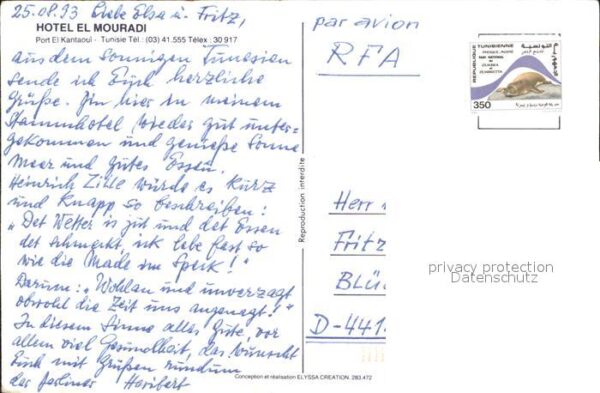 25.08.93 Liebe Elsa u. Fritz,
HOTEL EL MOURADI
Port El Kantaoui - Tunisie Tél.: (03) 41.555 Télex : 30 917
aus dem sonnigen Tunesien
sende ich Euch herzliche
Grüße. Bin hier in meinem
Stammhotel wieder gut unter-
gekommen und genieße Sonne
Meer und gutes Essen.
Heinrich Zille würde es kurz
und knapp so beschreiben:
"Det Wetter is jut und det Essen
det schmeckt, ick lebe fast so
wie die Made im Speck!"
Darum: "Wohlan und unverzagt
obwohl die Zeit uns angenagt!"
In diesem Sinne alles Gute, vor
allem viel Gesundheit, das wünscht
Euch mit Grüßen rundum
der Berliner Heribert
Conception et réalisation ELYSSA CREATION. 283.472
Reproduction interdite
par avion
RFA
REPUBLIQUE TUNISIENNE
350
Herr
Fritz
BLÜ
D-441
privacy protection
Datenschutz